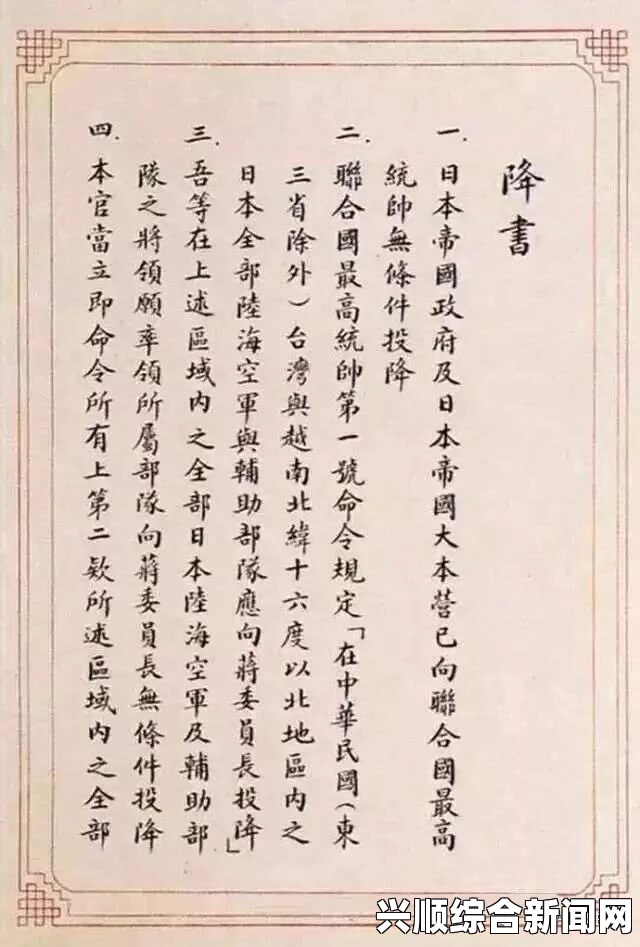 降書
一. 日本帝國政府及日本帝國大本營已向聯合國最高
統帥無條件投降
二. 聯合國最高統帥第一號命令規定「在中華民國(東
三省除外)台灣與越南北緯十六度以北地區內之
日本全部陸海空軍與輔助部隊應向蔣委員長投降」
三. 吾等在上述區域內之全部日本陸海空軍及輔助部
隊之將領願率領所屬部隊向蔣委員長無條件投降
四. 本官當立即命令所有上第二欵所述區域內之全部
兴顺综合新闻网